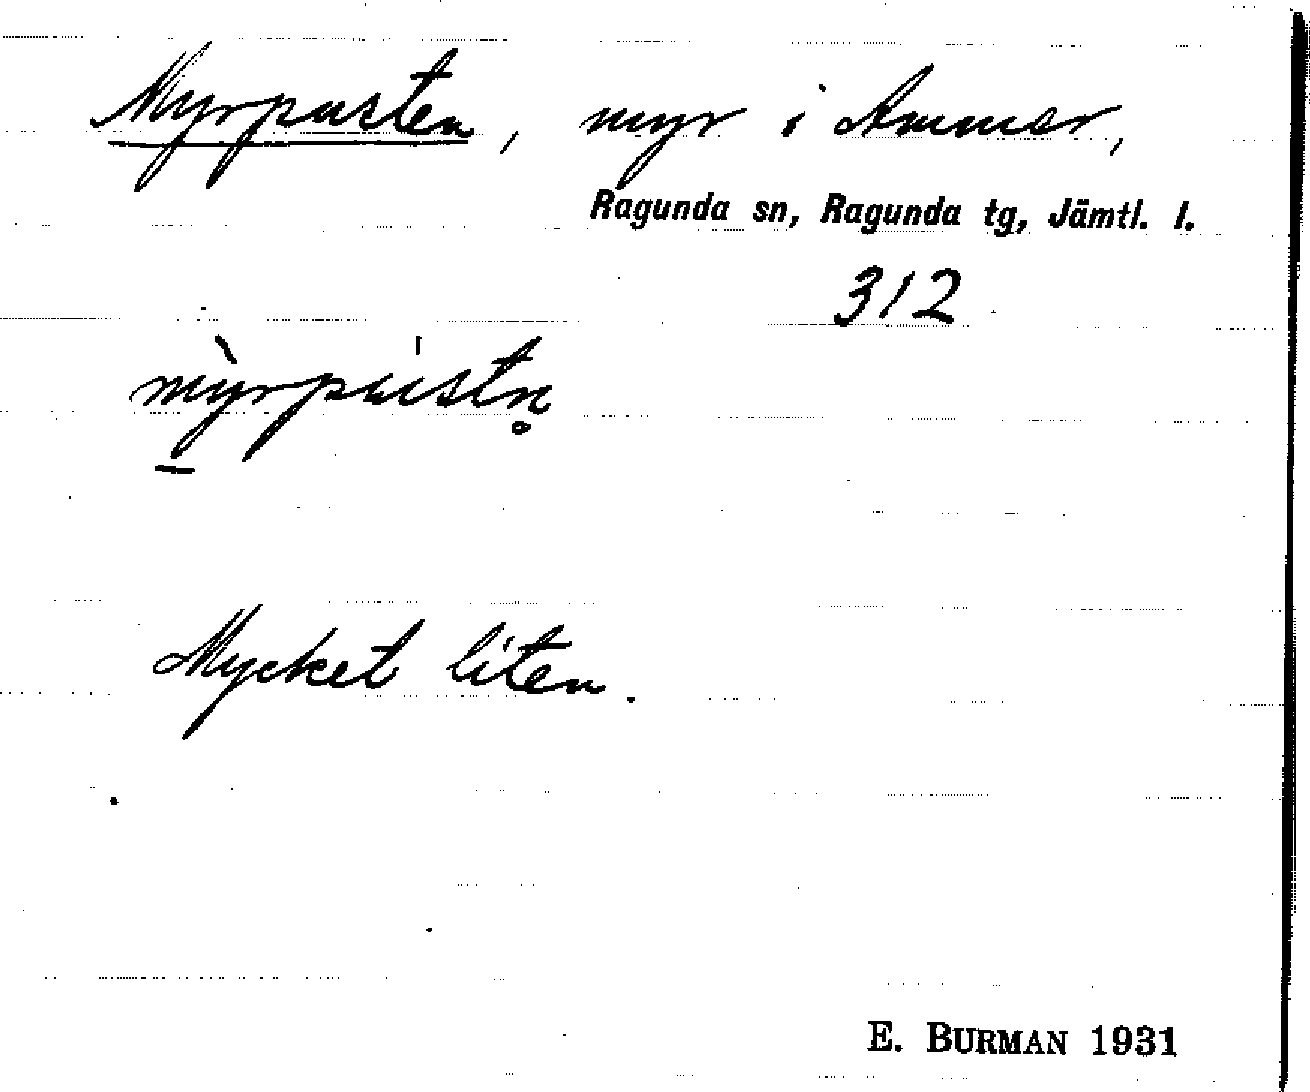 Myrpusten, myr i Ammer,
Ragunda sn, Ragunda tg, Jämtl. l.
312
mỳrpústn̥
Mycket liten.
E. BURMAN 1931